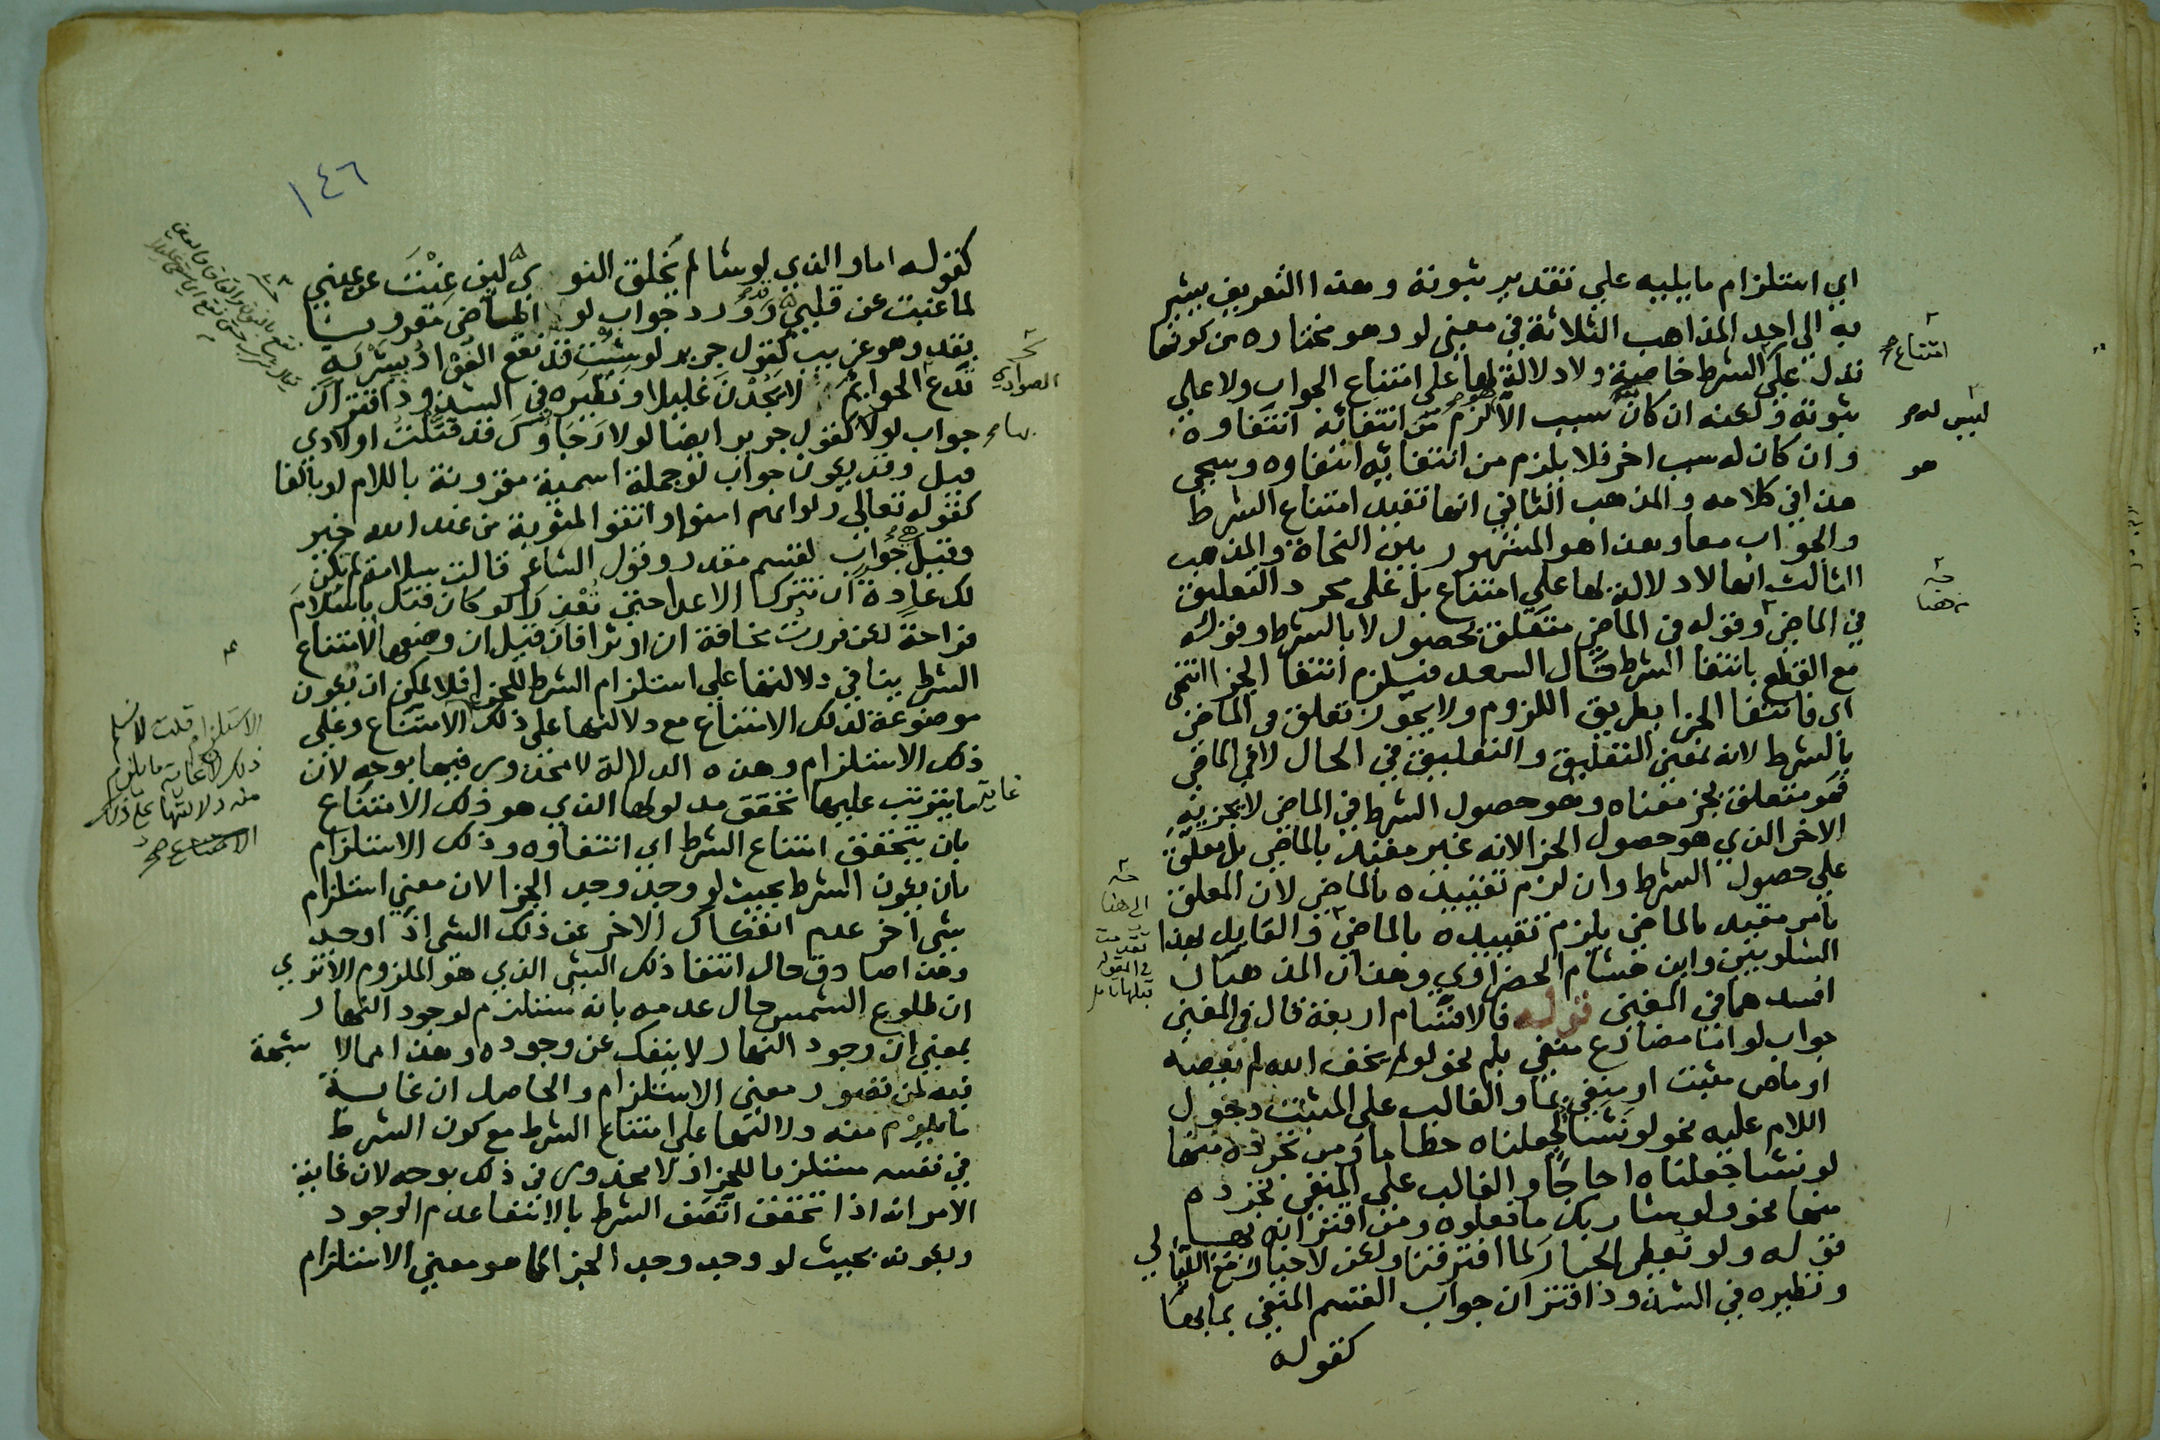 اي استلزام ما يليه علي تقدير ثبوته وهذا التعريف يشير
به الي احد المذاهب الثلاثة في معني لو وهو مختاره من كونها
تدل علي الشرط خاصة ولا دلالة لها علي امتناع الجواب ولا علي
امتناع صح
ثبوته ولكنه ان كان سبب الا لزم من انتفائه انتفاوه
ليس له صح
وان كان له سبب اخر فلا يلزم من انتفائه انتفاوه وسيجي
هو
هذا في كلامه والمذهب الثاني انها تفيد امتناع الشرط
والجواب معا وهذا هو المشهور بين النحاة والمذهب
الثالث انها لا دلالة لها علي امتناع بل علي مجرد التعليق
من هنا
في الماضي وقوله في الماضي متعلق بحصول لا بالشرط وقوله
مع القطع بانتفا الشرط قال السعد فيلزم انتفا الجزا انتهي
اي فانتفا الجزا بطريق اللزوم ولا يجوز تعلق في الماضي
بالشرط لانه بمعني التعليق والتعليق في الحال لا في الماضي
فهو متعلق بجز معناه وهو حصول الشرط في الماضي لا بجزيه
الاخر الذي هو حصول الجزا لانه غير مقيد بالماضي بل معلق
علي حصول الشرط وان لزم تقييده بالماضي لان المعلق
الي هنا
بامر مقيد بالماضي يلزم تقييده بالماضي والقايل بهذا
الشلوبين وابن هشام الخضراوي وهذان المذهبان
افسدهما في المغني قوله فالاقسام اربعة قال في المغني
جواب لو اما مضارع منفي بلم نحو لو لم يخف الله لم يعصه
او ماض مثبت او منفي بما والغالب علي المثبت دخول
اللام عليه نحو لو نشا لجعلناه حطاما ومن تجرده منها
لو نشا جعلناه اجاجا والغالب علي المنفي تجرده
منها نحو ولو شا ربك ما فعلوه ومن اقترانه بها
قوله ولو نعطي الخيار لما افترقنا ولكن لا خيار مع الليالي
ونظيره في الشذوذ اقتران جواب القسم المنفي بما بها
كقوله
١٤٦
كقوله اما والذي لو شا لم يخلق النوي لين غبت عن عيني
لما غبت عن قلبي وورد جواب لو الماضي مقرونا
بقد وهو غريب كقول جرير لو شئت قد نقع الفؤاد بشربة
تدع الحوائم لا يجدن غليلا ونظيره في الشذوذ اقتران
الصوادي
جواب لولا بها صح كقول جرير ايضا لولا رجاؤك قد قتلت اولادي
قيل وقد يكون جواب لو جملة اسمية مقرونة باللام او بالفا
كقوله تعالي ولو انهم امنوا واتقوا لمثوبة من عند الله خير
وقيل هي جواب لقسم مقدر وقول الشاعر قالت سلامة لم يكن
لك عادة ان تترك الاعدا حتي تعذرا لو كان قتل يا سلام
فراحة لكن فررت مخافة ان اوثرا فان قيل ان وضعها لامتناع
الشرط ينافي دلالتها علي استلزام الشرط للجزا فلا يمكن ان تكون
موضوعة لذلك الامتناع مع دلالتها علي ذلك
الاستلزام قلت لا نسلم
ذلك لان غاية ما يلزم
منه دلالتها علي ذلك
الامتناع صح
الامتناع وعلي
ذلك الاستلزام وهذه الدلالة لا محذور فيها بوجه لان
غاية ما يترتب عليها تحقق مدلولها الذي هو ذلك الامتناع
بان يتحقق امتناع الشرط اي انتفاوه وذلك الاستلزام
بان يكون الشرط بحيث لو وجد وجد الجزا لان معني استلزام
شي اخر عدم انفكاك الاخر عن ذلك الشي اذا وجد
وهذا صادق حال انتفا ذلك الشي الذي هو الملزوم الا تري
ان طلوع الشمس حال عدمه بانه مستلزم لوجود النهار
بمعني ان وجود النهار لا ينفك عن وجوده وهذا مما لا شبهة
فيه لمن تصور معني الاستلزام والحاصل ان غاية
ما يلزم منه دلالتها علي امتناع الشرط مع كون الشرط
في نفسه مستلزما للجزا ولا محذور في ذلك بوجه لان غاية
الامر انه اذا تحقق اتصف الشرط بالانتفا عدم الوجود
ويكون بحيث لو وجد وجد الجزا كما هو معني الاستلزام